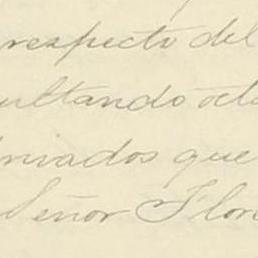 respecto del
ultando
rivados que
Señor Flor